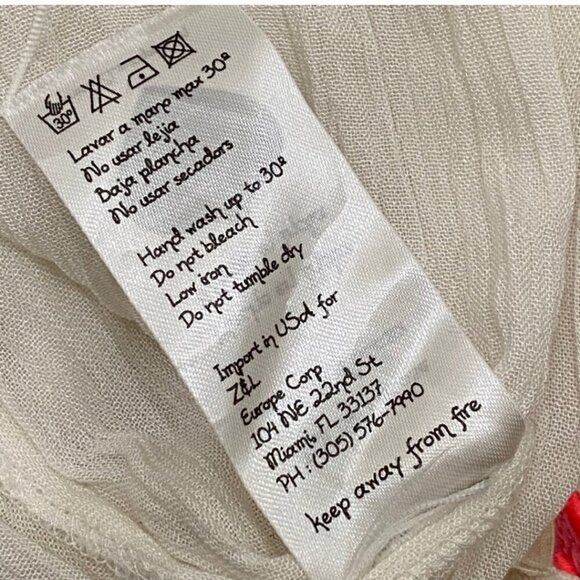 30º
Lavar a mano max 30º
No usar lejia
Baja plancha
No usar secadors
Hand wash up to 30º
Do not bleach
Low iron
Do not tumble dry
Import in USA for
Z&L
Europe Corp
104 NE 22nd St
Miami, FL 33137
PH : (305) 576-7990
keep away from fire